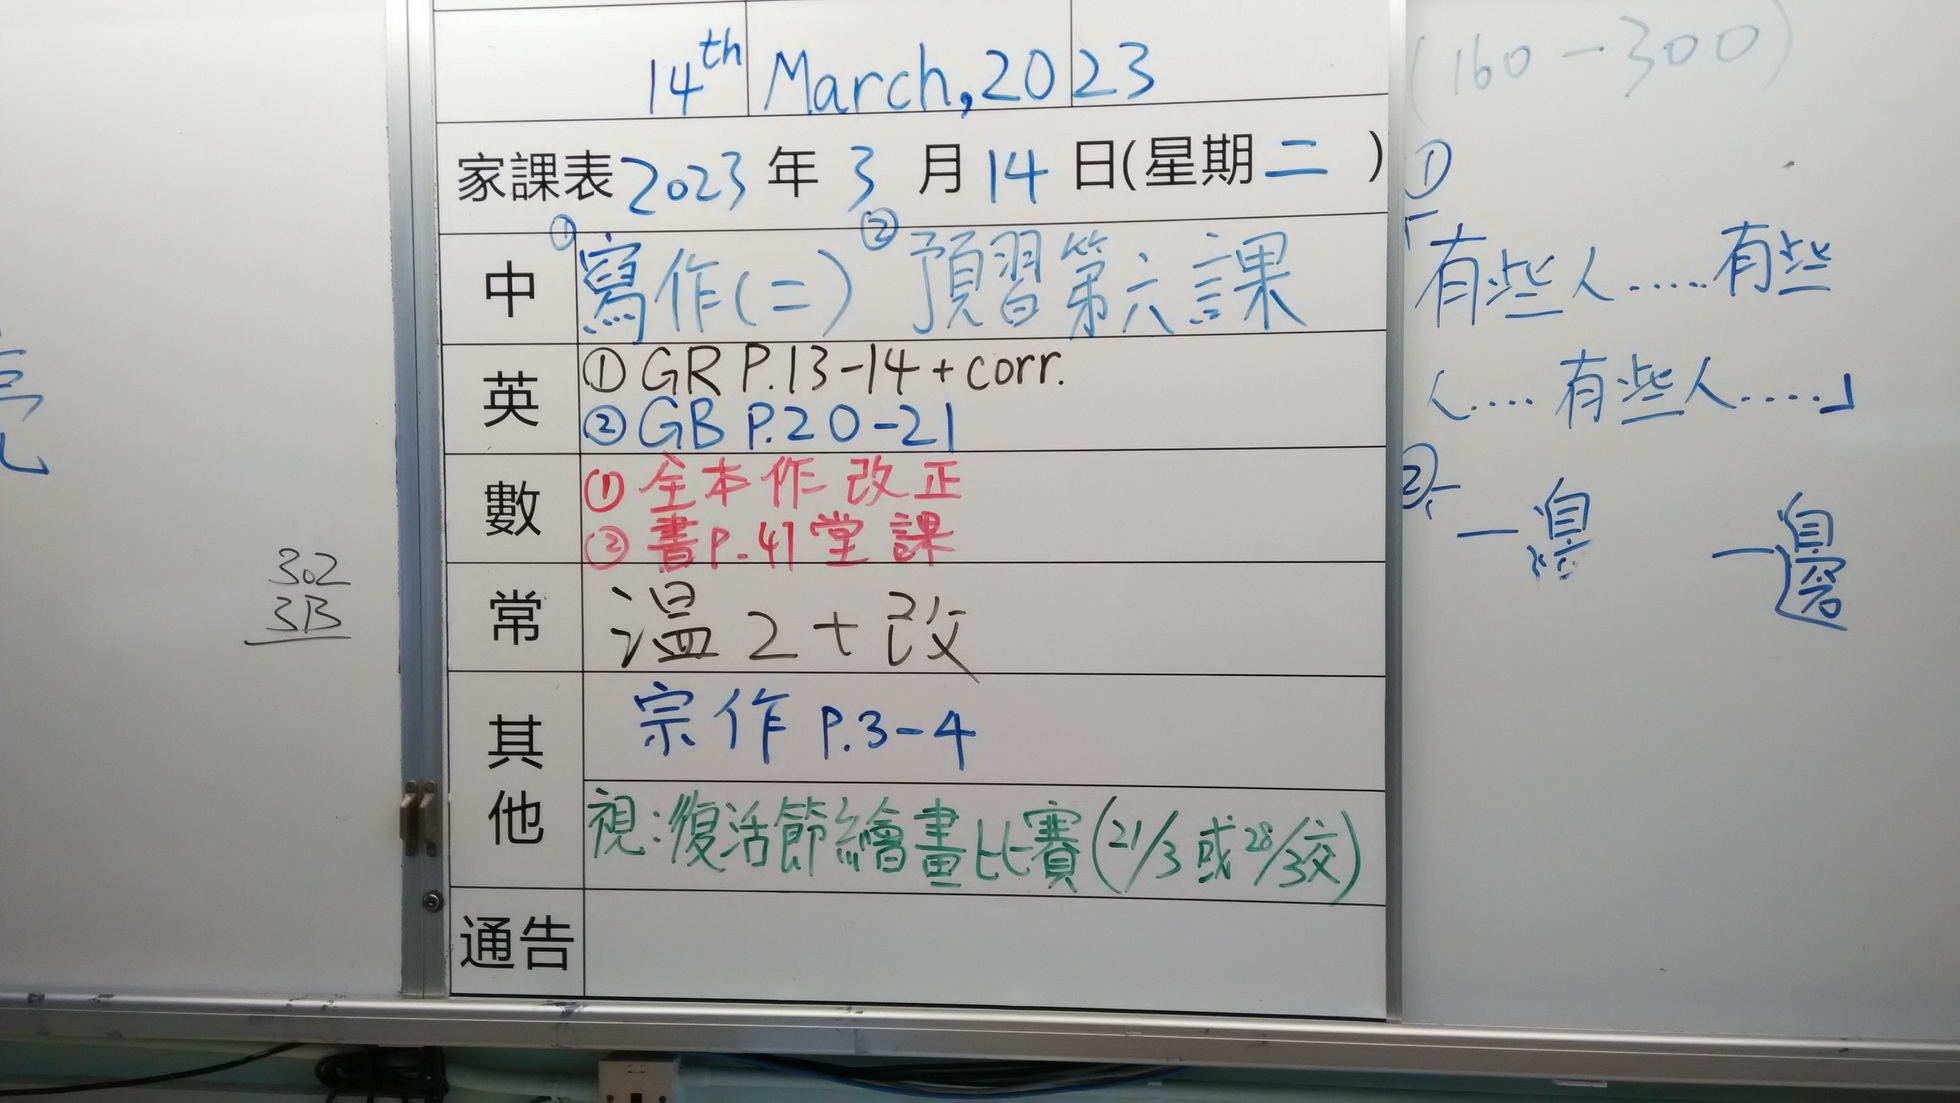 14th March, 2023
家課表 2023 年 3 月 14 日(星期二)
中 ①寫作(二) ②預習第六課
英 ①GR P.13-14+corr.
②GB P.20-21
數 ①全本作改正
②書P.41堂課
常 溫2+改
其他 宗作 P.3-4
視:復活節繪畫比賽(21/3或28/3交)
通告
302
3B
(160-300)
①
「有些人.....有些
人.... 有些人.....」
②
一邊 一邊